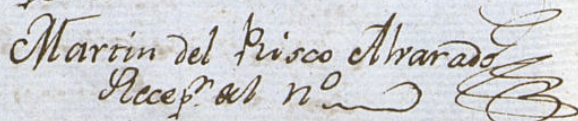 Martin del Risco Alvarado
Recepr. del no